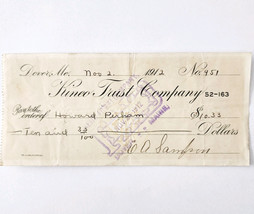 Dover, Me. Nov 2, 1912 No. 951
Kineo Trust Company 52-163
Pay to the
order of Howard $10.33
Ten and 33/100 Dollars